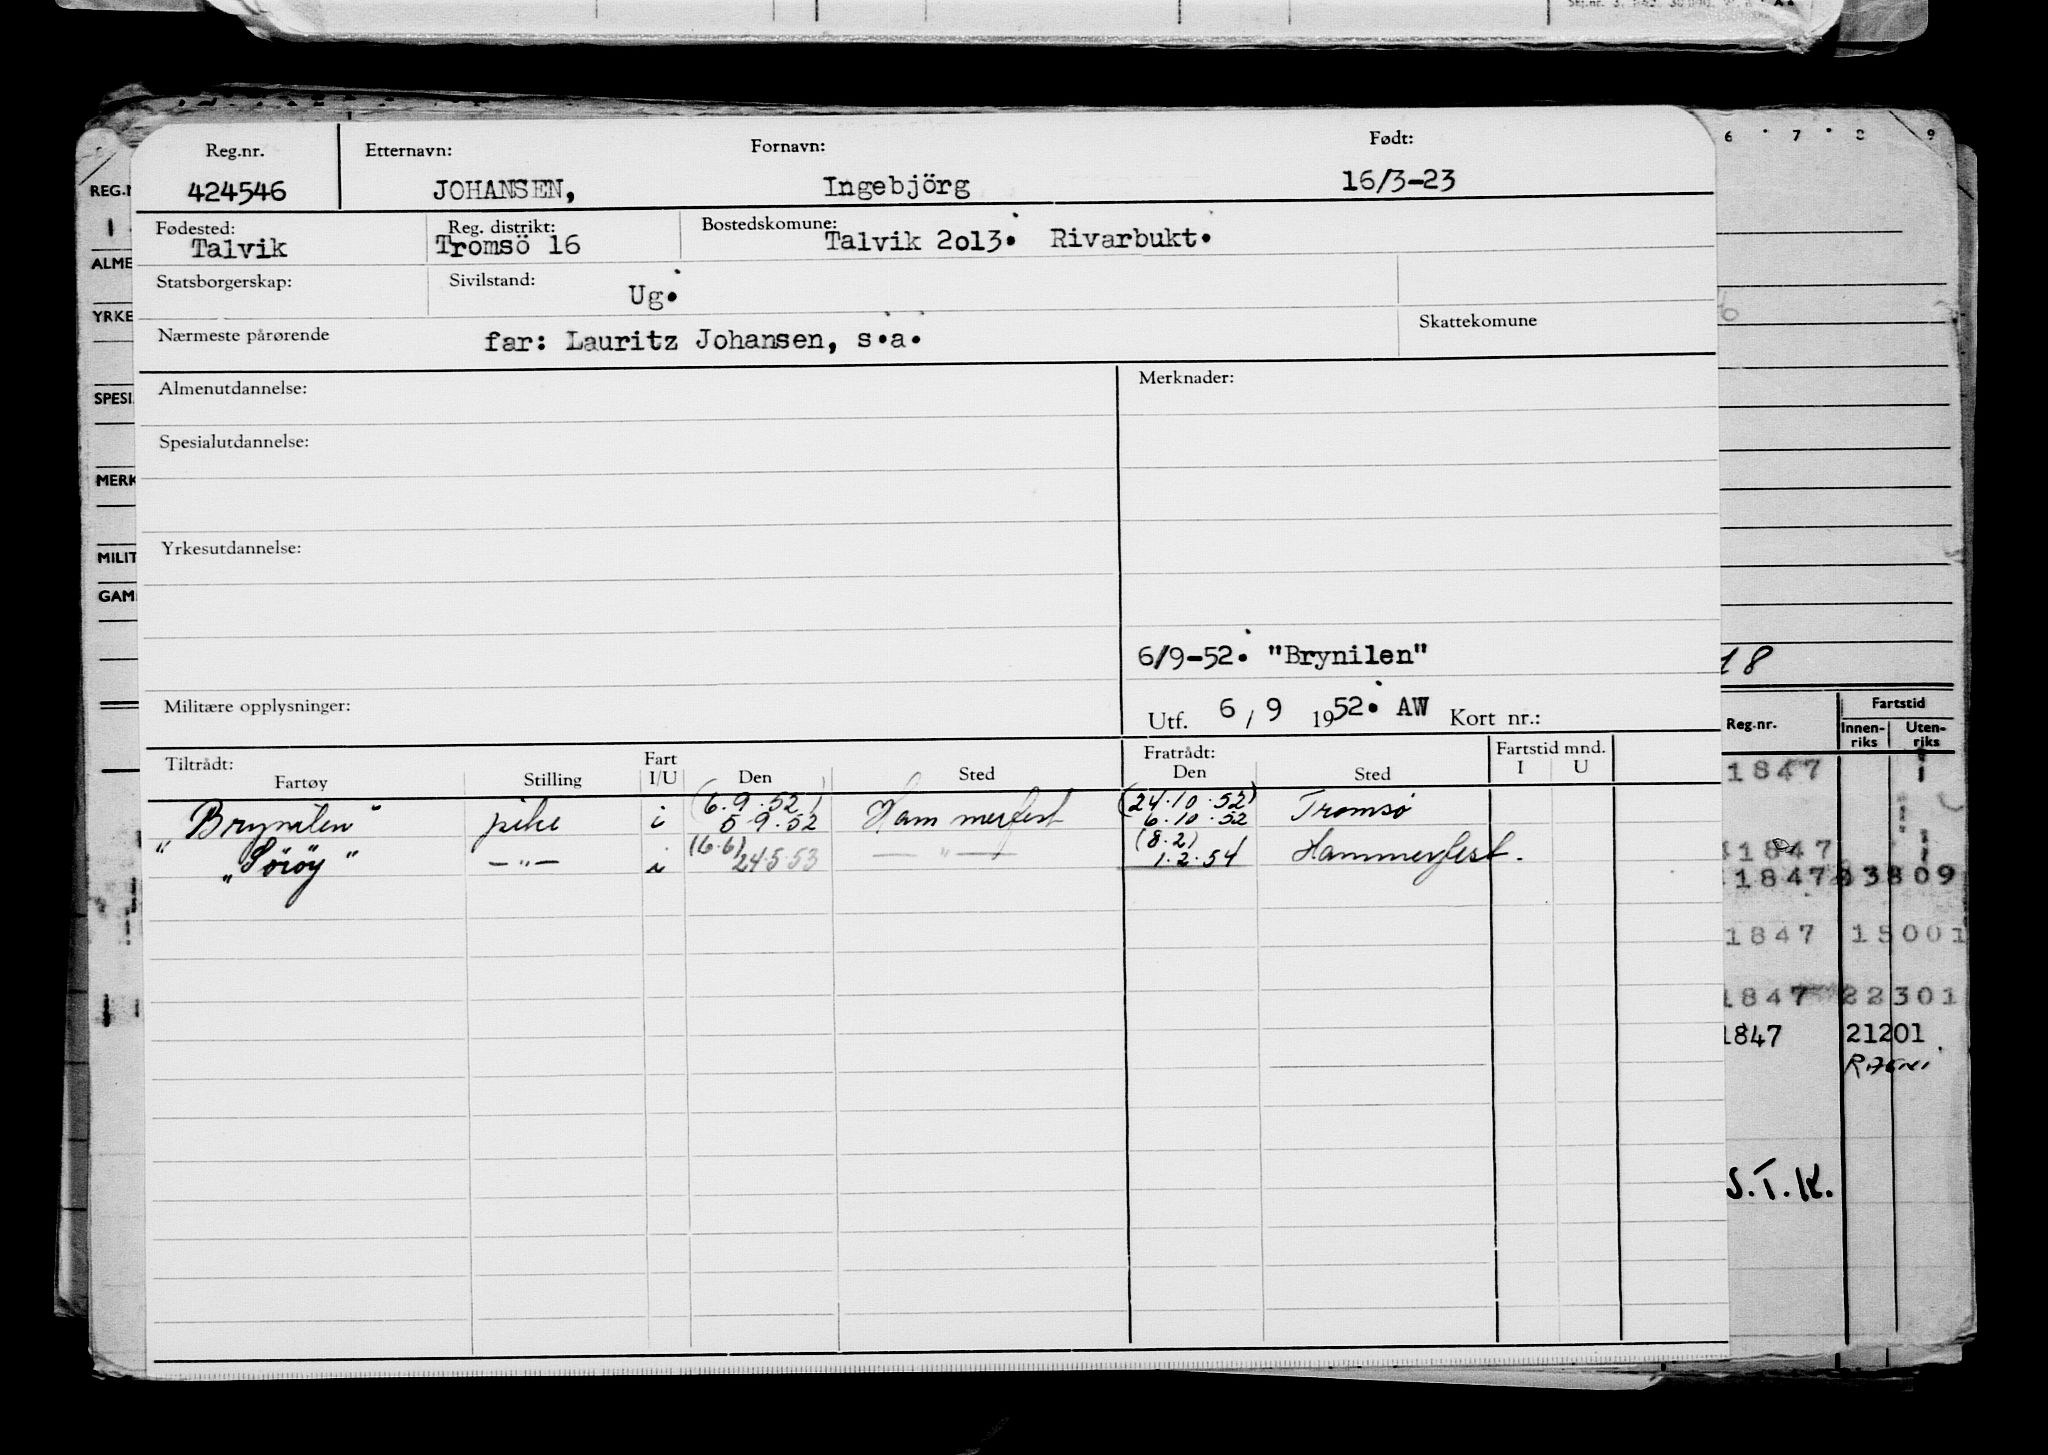 Skj.nr. 3.
6 7 8 9
Reg.nr. Etternavn: Fornavn: Født:
424546 JOHANSEN, Ingebjörg 16/3-23
Fødested: Reg. distrikt: Bostedskomune:
Talvik Tromsö 16 Talvik 2o13. Rivarbukt.
Statsborgerskap: Sivilstand:
Ug.
Nærmeste pårørende far: Lauritz Johansen, s.a. Skattekomune
Almenutdannelse: Merknader:
Spesialutdannelse:
Yrkesutdannelse:
6/9-52. "Brynilen"
Militære opplysninger: Utf. 6/9 1952. AW Kort nr.:
Tiltrådt: Fart Fratrådt: Fartstid mnd.
Fartøy Stilling I/U Den Sted Den Sted I U
(6.9.52) (24.10.52)
"Brynilen" pike i 5.9.52 Hammerfest 6.10.52 Tromsø
(6.6) (8.2)
"Sörøy" —"— i 24.5.53 —"— 1.2.54 Hammerfest.
REG.N
ALME
YRKE
SPESI
MERK
MILIT
GAM
18
Reg.nr. Fartstid
Innen-riks Uten-riks
1847
41847
1847 3809
1847 15001
1847 22301
1847 21201
S.T.K.